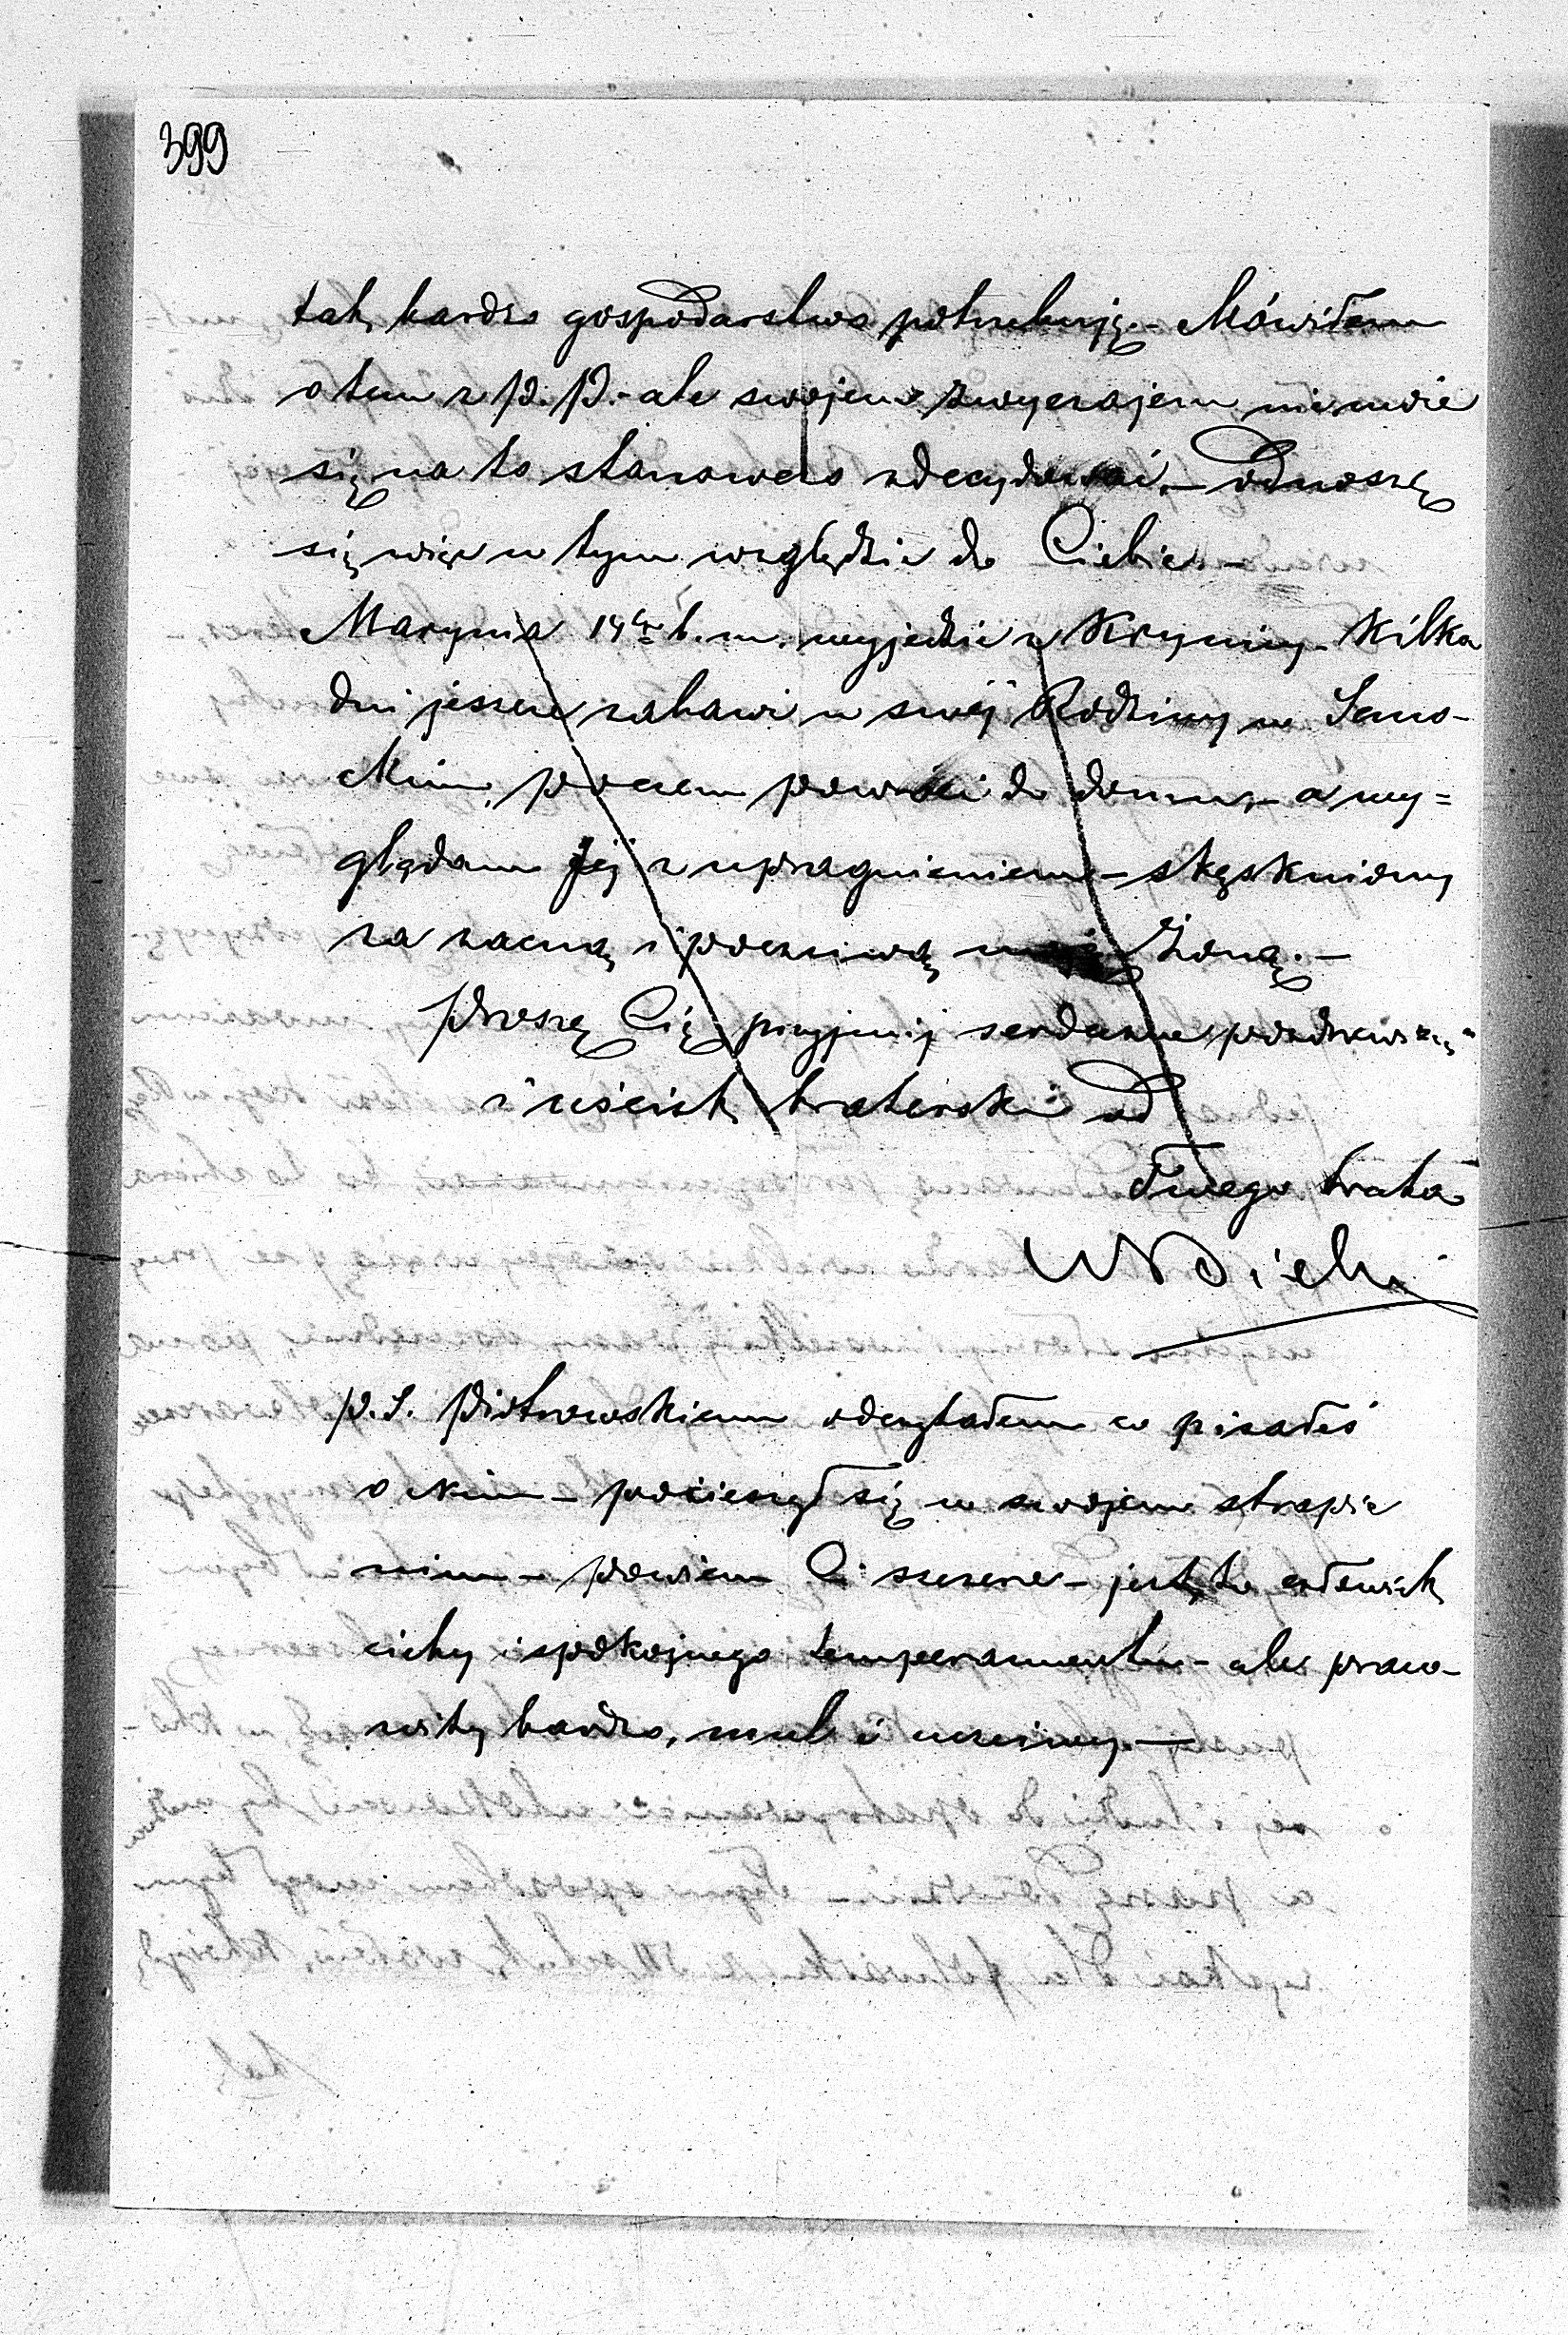 399
tak bardzo gospodarstwo potrzebuję. – Mówiłem
o tem z P. P. – ale swojem zwyczajem nie umie
się na to stanowczo zdecydować, – odnoszę
się więc w tym względzie do Ciebie. –
Marynia 14go b. m. wyjedzie z Krynicy. Kilka
dni jeszcze zabawi u swéj Rodziny w Sano-
ckim, poczem powróci do domu, – a wy=
glądam Jéj z upragnieniem – stęskniony
za zacną i poczciwą moją Żoną. –
Proszę Cię przyjmij serdeczne
i uścisk braterski od
Twego brata
P.S. Piotrowskiemu odczytałem co pisałeś
o Nim – pocieszył się w swojem strapie
niu – powiem Ci szczerze – jest to człowiek
cichy i spokojnego temperamentu – ale praco-
wity bardzo, i uczciwy. –